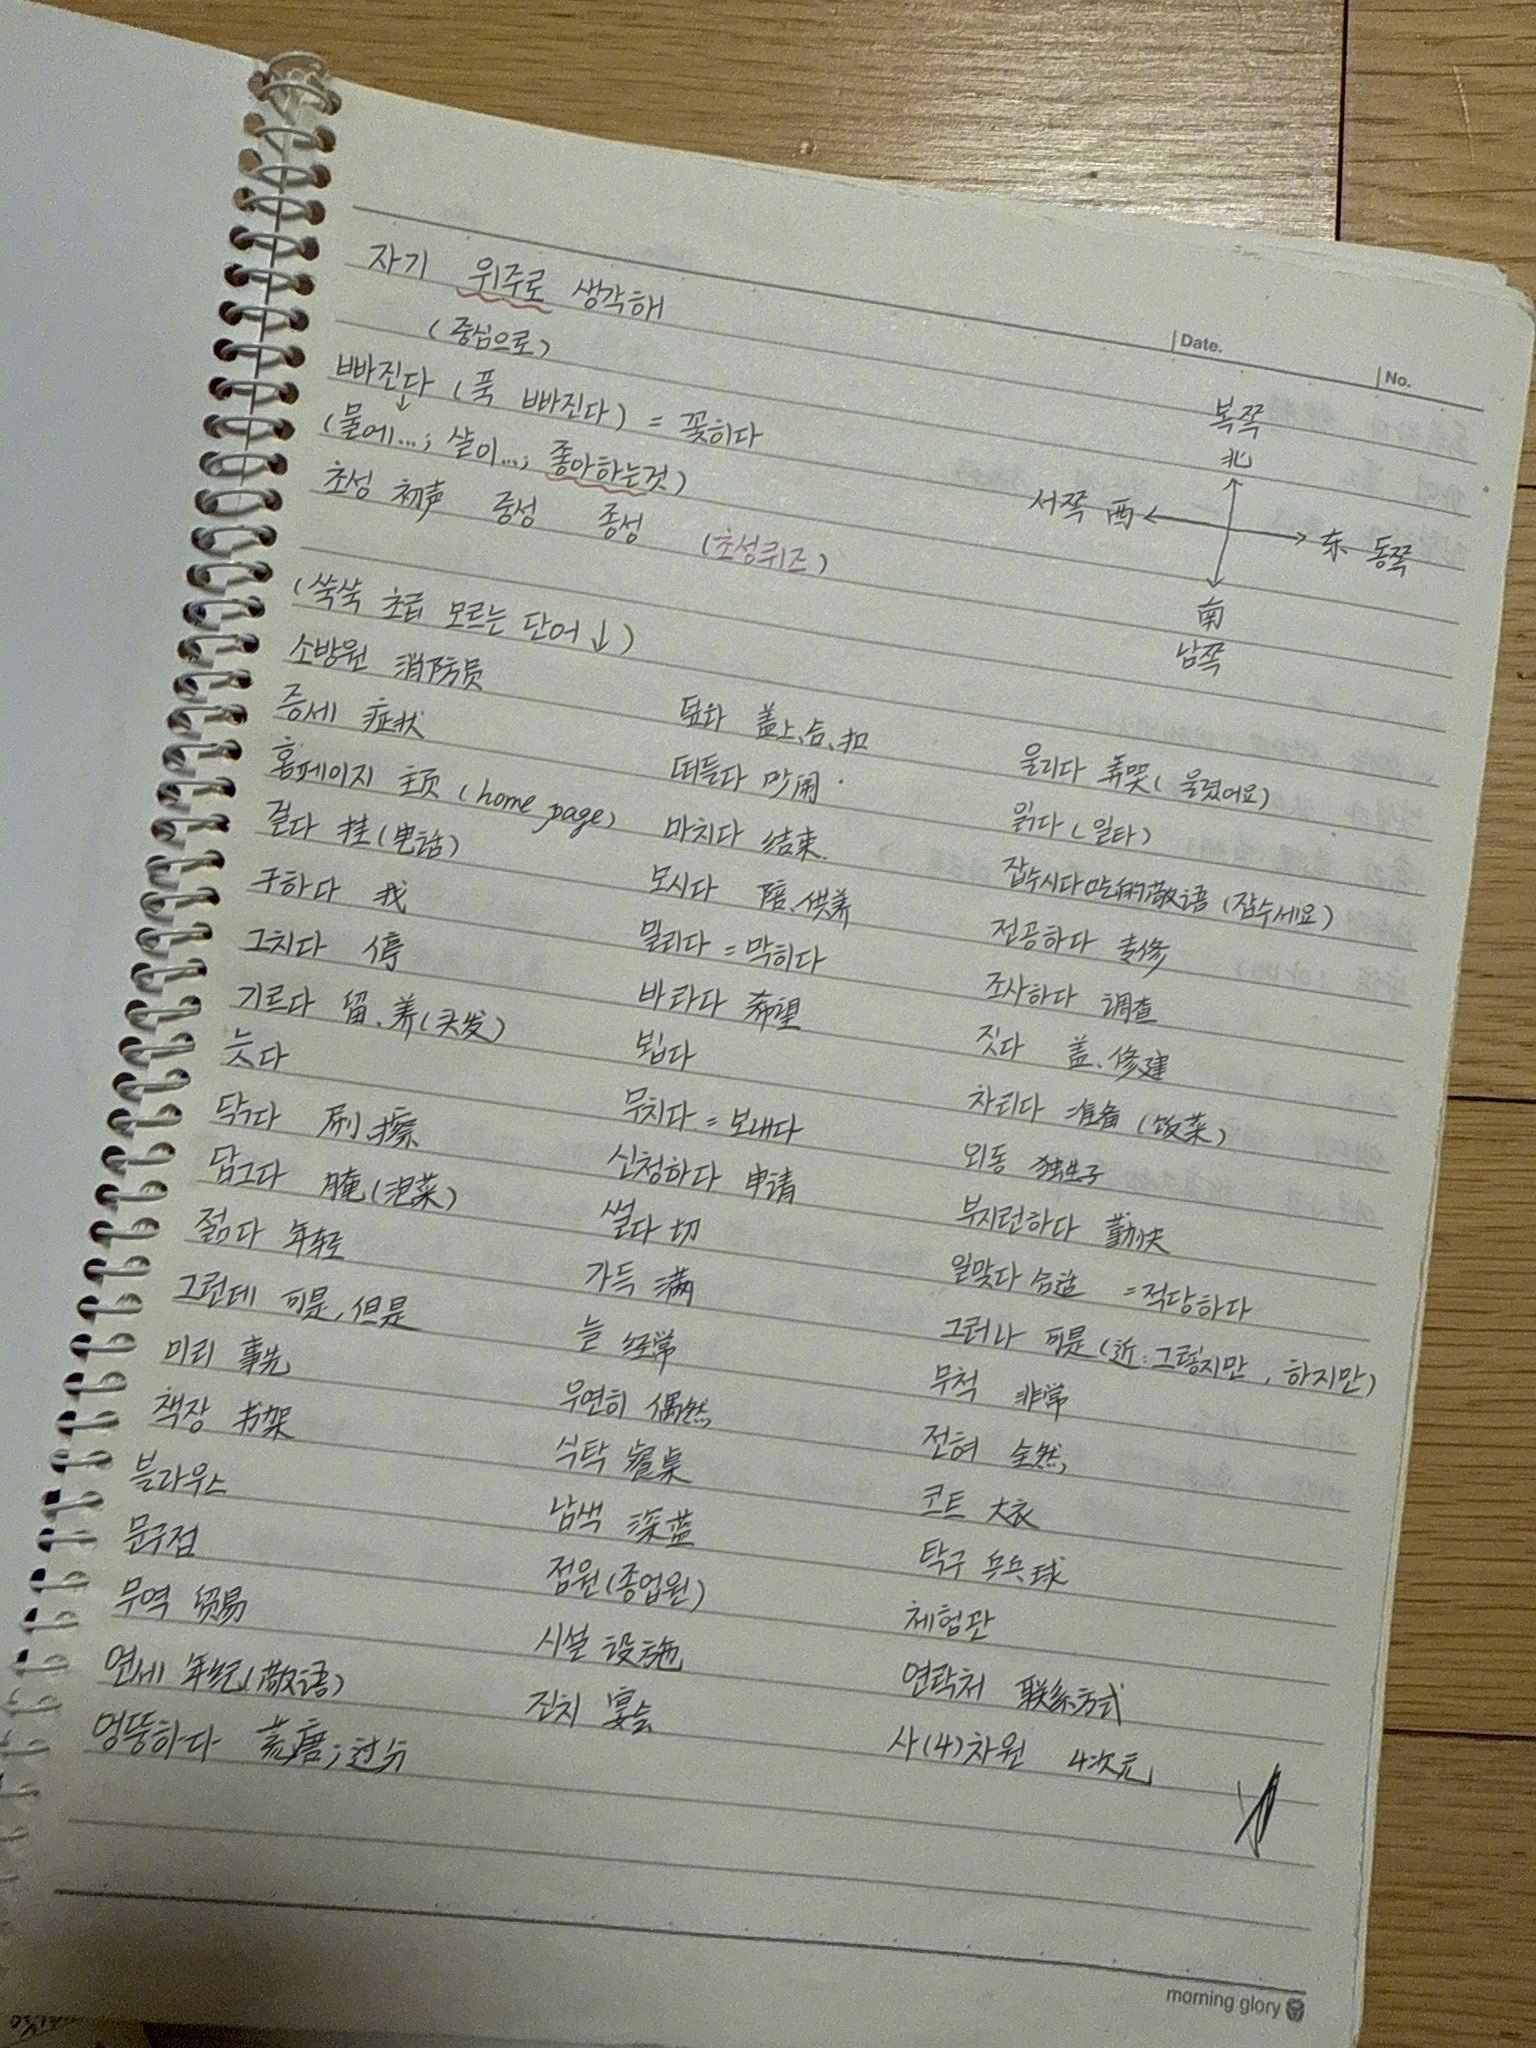 Date.
No.
자기 위주로 생각해
(중심으로)
빠진다 (푹 빠진다) = 꽂히다
(물에...; 살이...; 좋아하는것)
초성 初声 중성 종성 (초성퀴즈)
복쪽
北
서쪽 西
东 동쪽
南
남쪽
(쑥쑥 초급 모르는 단어↓)
소방원 消防员
증세 症状
홈페이지 主页 (home page)
걸다 挂(电话)
구하다 找
그치다 停
기르다 留、养(头发)
늣다
닦다 刷、擦
담그다 腌(泡菜)
젊다 年轻
그런데 可是,但是
미리 事先
책장 书架
블라우스
문구점
무역 贸易
연세 年纪(敬语)
엉뚱하다 荒唐;过分
盖上、合、扣
떠들다 吵闹.
마치다 结束.
모시다 陪、供养
밀리다 = 막히다
바라다 希望
뵙다
부치다 = 보내다
신청하다 申请
썰다 切
가득 满
늘 经常
우연히 偶然
식탁 餐桌
남색 深蓝
점원(종업원)
시설 设施
잔치 宴会
울리다 弄哭(울렸어요)
읽다(일타)
잡수시다 吃的敬语 (잡수세요)
전공하다 专修
조사하다 调查
짓다 盖、修建
차리다 准备 (饭菜)
외동 独生子
부지런하다 勤快
알맞다 合适 =적당하다
그러나 可是(近:그렇지만, 하지만)
무척 非常
전혀 全然
코트 大衣
탁구 乒乓球
체험관
연락처 联系方式
사(4)차원 4次元
morning glory